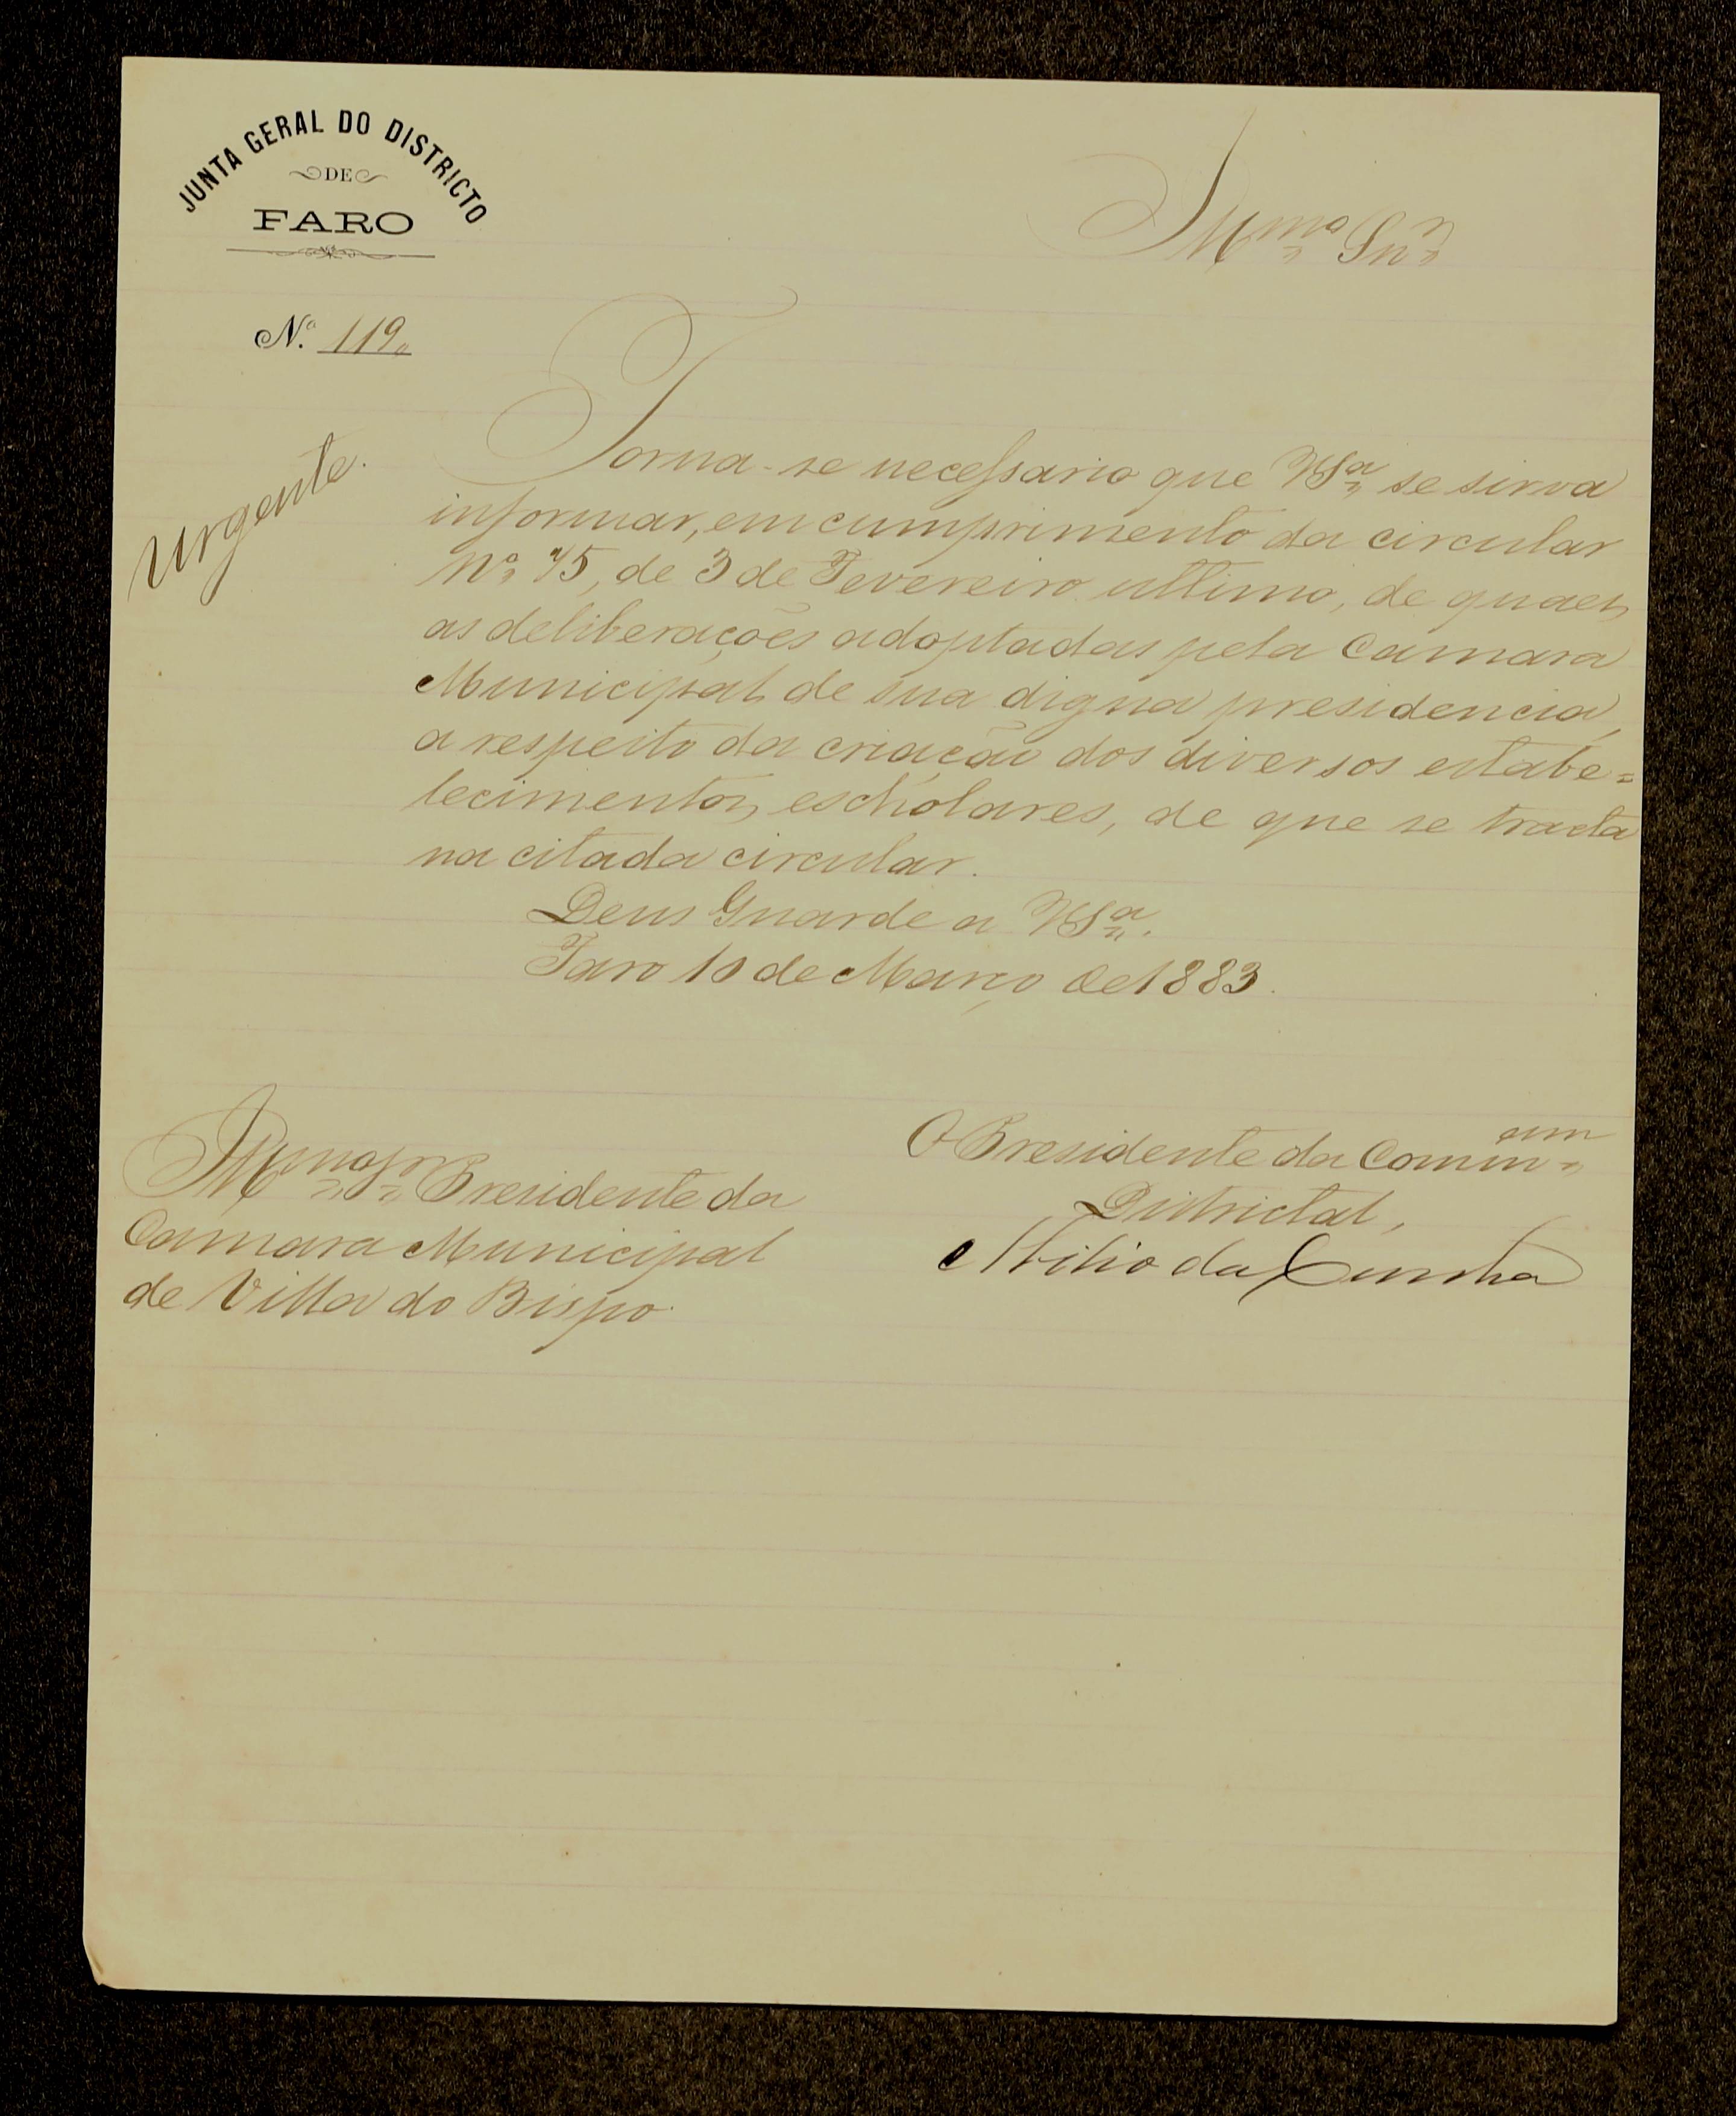 JUNTA GERAL DO DISTRICTO
DE
FARO
Illmo Snr
N.º 119
Urgente.
Torna-se necessario que VSª se sirva
informar, em cumprimento da circular
Nº 75, de 3 de Fevereiro ultimo, de quaes
as deliberações adoptadas pela Camara
Municipal de sua digna presidencia,
a respeito da criação dos diversos estabe=
lecimentos escholares, de que se tracta
na citada circular.
Deus Guarde a VSª.
Faro 10 de Março de 1883.
O Presidente da Commam
Districtal,
Abilio da Cunha
Illmo Sr Presidente da
Camara Municipal
de Villa do Bispo.